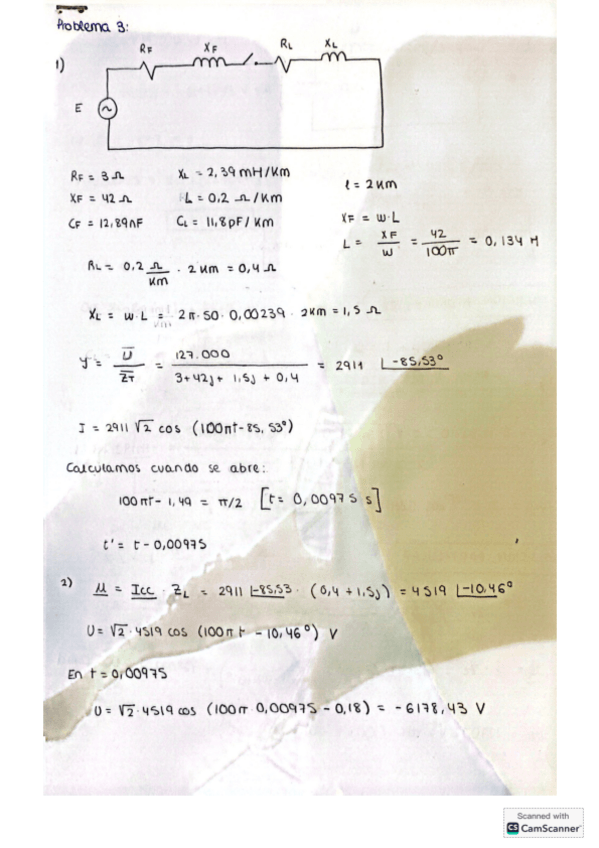 Problema 3:
1)
RF XF RL XL
E
RF = 3 Ω XL = 2,39 mH/Km l = 2 Km
XF = 42 Ω RL = 0.2 Ω/Km XF = W·L
CF = 12,89 nF CL = 11,8 pF/Km L = XF/W = 42/100π = 0,134 H
RL = 0.2 Ω/Km · 2 Km = 0,4 Ω
XL = W·L = 2π·50·0,00239·2Km = 1,5 Ω
Y = U/ZT = 127.000/3+42j+1,5j+0,4 = 2911 ∟-85,53°
I = 2911 √2 cos (100πt - 85,53°)
Calculamos cuando se abre:
100πt - 1,49 = π/2 [t = 0,00975 s]
t' = t - 0,00975
2) U = Icc · ZL = 2911 ∟-85,53 · (0,4 + 1,5j) = 4519 ∟-10,46°
U = √2 · 4519 cos (100πt - 10,46°) V
En t = 0,00975
U = √2 · 4519 cos (100π · 0,00975 - 0,18) = -6178,43 V
Scanned with
CS CamScanner